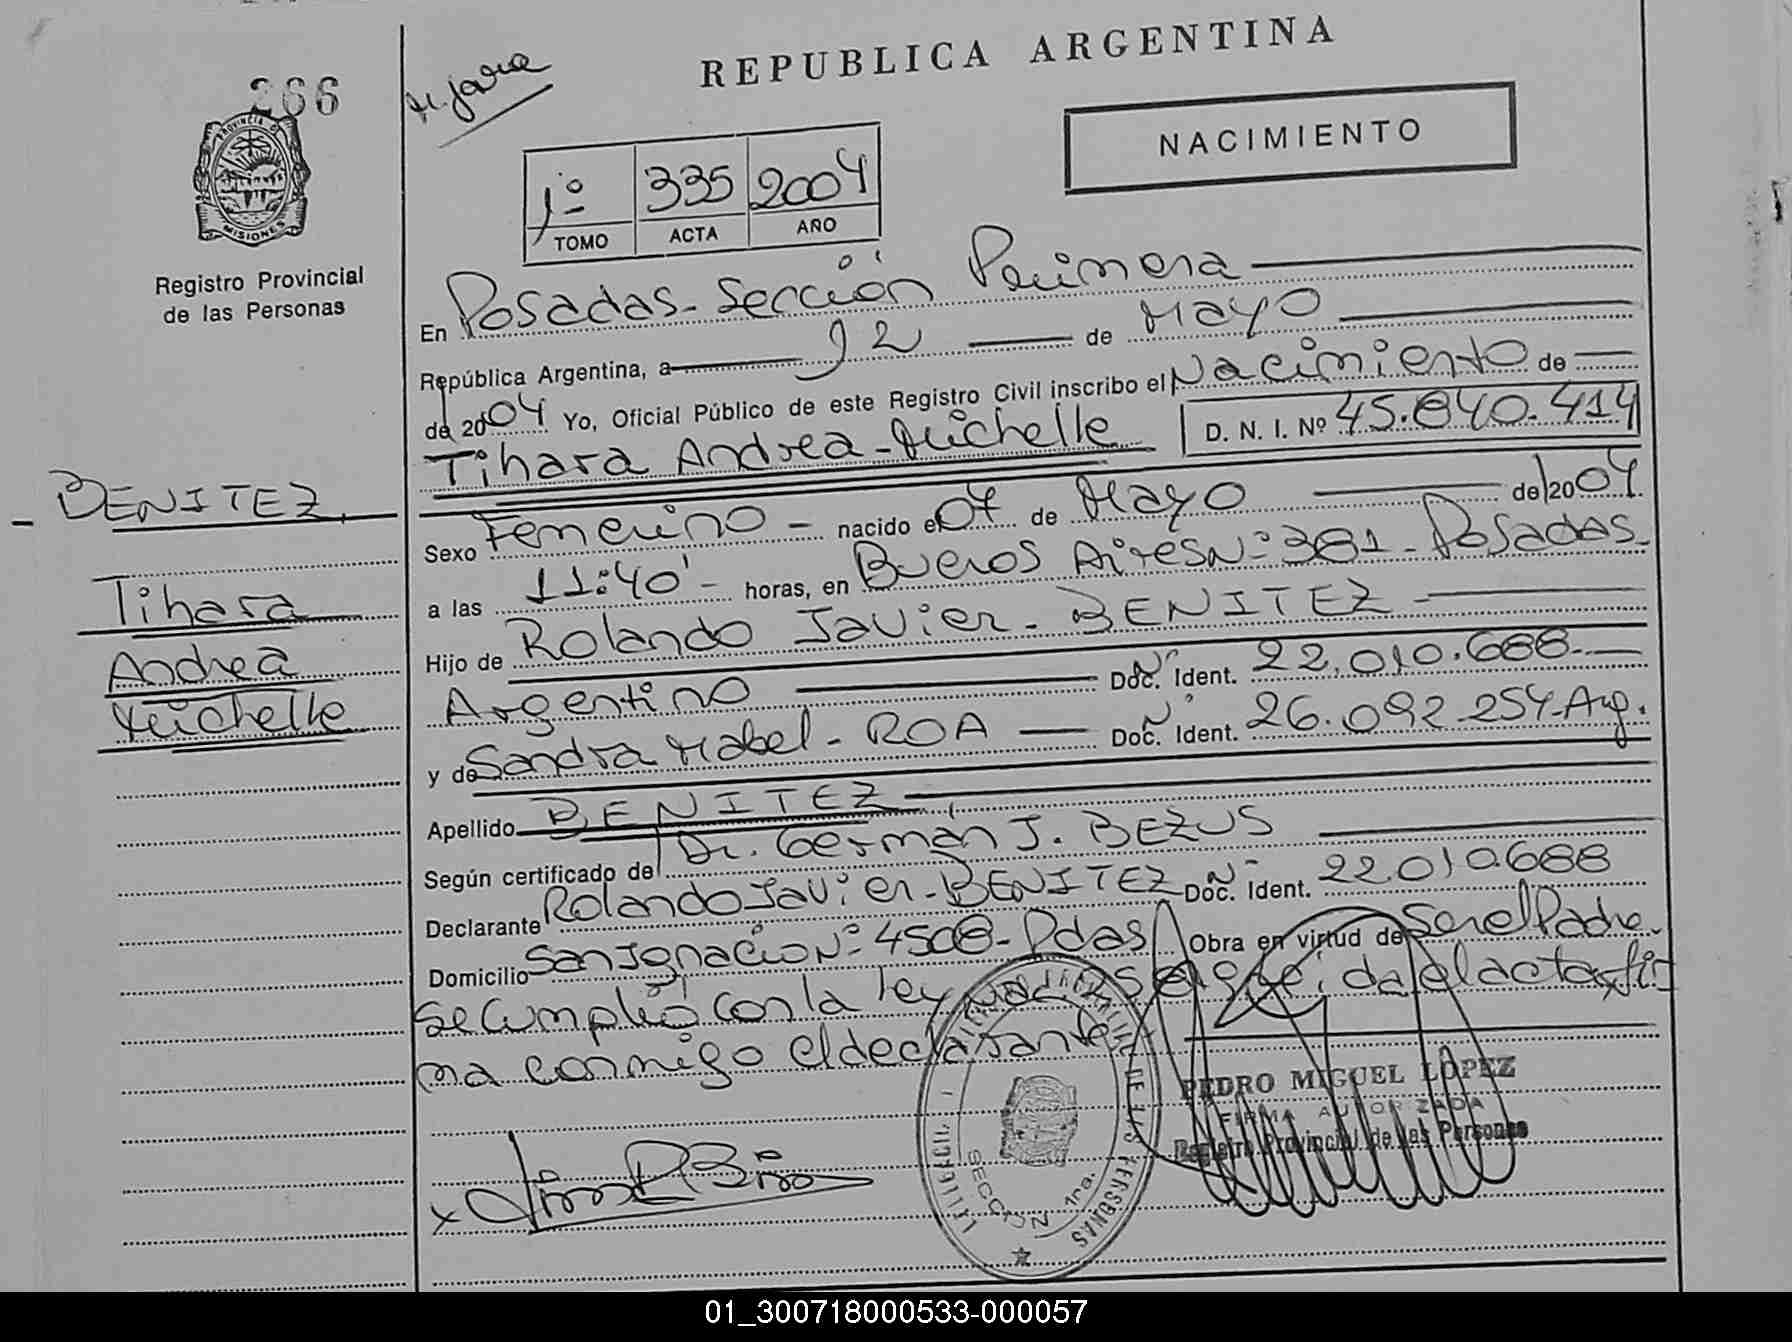 266
PROVINCIA DE
MISIONES
Registro Provincial
de las Personas
REPUBLICA ARGENTINA
NACIMIENTO
1º 335 2004
TOMO ACTA AÑO
En Posadas - Sección Primera
República Argentina, a 12 de Mayo
de 2004 Yo, Oficial Público de este Registro Civil inscribo el Nacimiento de
Tihara Andrea - Michelle D. N. I. Nº 45.840.414
Sexo Femenino - nacido el 07 de Mayo de 2004
a las 11:40' - horas, en Buenos Aires Nº 381 - Posadas
Hijo de Rolando Javier - BENITEZ
Argentino Doc. Ident. 22.010.688
y de Sandra Mabel - ROA Doc. Ident. 26.092.254 - Arg.
Apellido BENITEZ
Según certificado de Dr. Germán J. BEZUS
Declarante Rolando Javier - BENITEZ Doc. Ident. 22.010.688
Domicilio San Ignacio Nº 4508 - Pdas Obra en virtud de Ser el Padre
Se Cumplió con la ley
leída el acta, fir
ma conmigo el declarante
BENITEZ
Tihara
Andrea
Michelle
PEDRO MIGUEL LOPEZ
FIRMA AUTORIZADA
Registro Provincial de las Personas
SECCION 1ra.
01_300718000533-000057